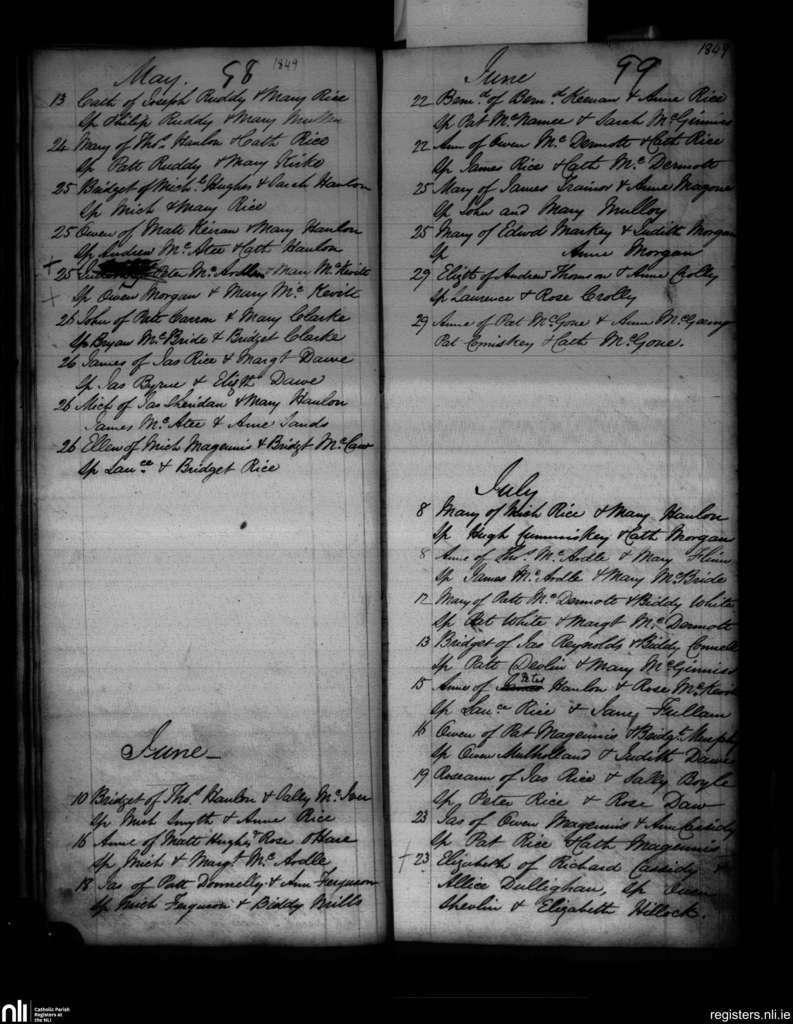 May. 98 1849
13 Cath of Joseph Ruddy & Mary Rice
Sp Philip Ruddy & Mary Mullen
24 Mary of Thos. Hanlon & Cath Rice
Sp Patt Ruddy & Mary Kirke
25 Bridget of Mich. Hughes & Sarah Hanlon
Sp Mich & Mary Rice
25 Owen of Matt Keiran & Mary Hanlon
Sp Andrew Mc. Atee & Cath Hanlon
25 Peter Mc. Ardle & Mary Mc. Kevitt
Sp Owen Morgan & Mary Mc. Kevitt
26 John of Patt Carron & Mary Clarke
Sp Bryan McBride & Bridget Clarke
26 James of Jas Rice & Margt Dawe
Sp Jas Byrne & Elizth Dawe
26 Mich of Jas Sheridan & Mary Hanlon
James Mc. Atee & Anne Sands
26 Ellen of Mich Magennis & Bridgt Mc. Caw
Sp Lauce. & Bridget Rice
June
10 Bridget of Thos. Hanlon & Sally Mc. Iver
Sp Mich Smyth & Anne Rice
16 Anne of Matt Hughes Rose OHare
Sp Mich & Margt. Mc. Ardle
18 Jas of Patt Donnelly & Ann Ferguson
Sp Mich Ferguson & Biddy Mills
June 99 1849
22 Bernd. of Bernd. Keenan & Anne Rice
Sp Pat McNamee & Sarah McGinniss
22 Ann of Owen Mc. Dermott & Cath Rice
Sp James Rice & Cath Mc. Dermott
25 Mary of James Trainor & Anne Magone
Sp John and Mary Mulloy
25 Mary of Edwd Markey & Judith Morgan
Sp Anne Morgan
29 Elizth of Andrew Thomson & Anne Crolly
Sp Laurence & Rose Crolly
29 Anne of Pat McGone & Anne
Pat Cmiskey & Cath McGone.
July
8 Mary of Mich Rice & Mary Hanlon
Sp Hugh Cummiskey & Cath Morgan
8 Anne of Thos. Mc. Ardle & Mary Flinn
Sp James Mc. Ardle & Mary McBride
12 Mary of Patt Mc. Dermott & Biddy White
Sp Pat White & Margt Mc. Dermott
13 Bridget of Jas Reynolds & Biddy Connell
Sp Patt Devlin & Mary McGinniss
15 Anne of James Peter Hanlon & Rose McKevitt
Sp Lauce Rice & Jane Fullam
16 Owen of Pat Magennis & Bridgt. Murphy
Sp Owen Mulholland & Judith Dawe
19 Roseann of Jas Rice & Sally Boyle
Sp Peter Rice & Rose Daw
23 Jas of Owen Magennis & Ann Cassidy
Sp Pat Rice & Cath Magennis
23 Elizabeth of Richard Cassidy &
Allice Dullighan, Sp Owen
Shevlin & Elizabeth Hillock.
nli Catholic Parish
Registers at
the NLI
registers.nli.ie